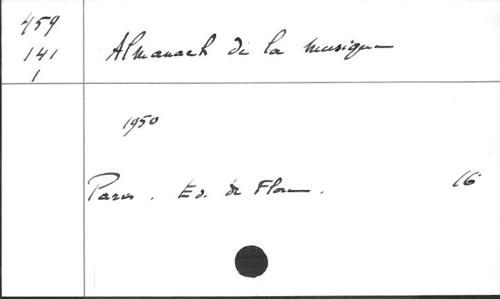 459
141
1
Almanach de la musique
1950
Paris. Ed. de Flore.
16